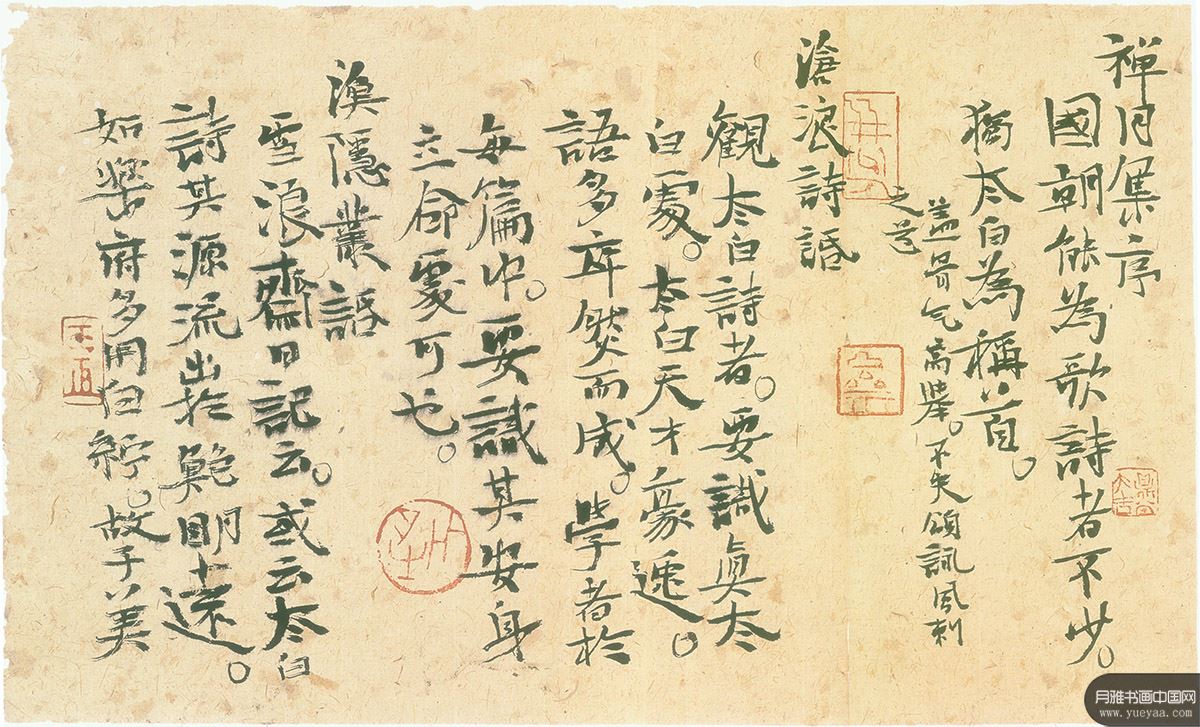 禪月集序
國朝能為歌詩者不少。
獨太白為稱首。
盖骨气高舉。不失頌詠風刺
之道
滄浪詩話
觀太白詩者。要識真太
白處。太白天才豪逸。
語多率然而成。學者於
每篇中。要識其安身
立命處可也。
漁隱叢話
雪浪齋日記云。或云太白
詩其源流出於鮑明遠。
如樂府多用白紵。故子美
月雅书画中国网
www.yueyaa.com